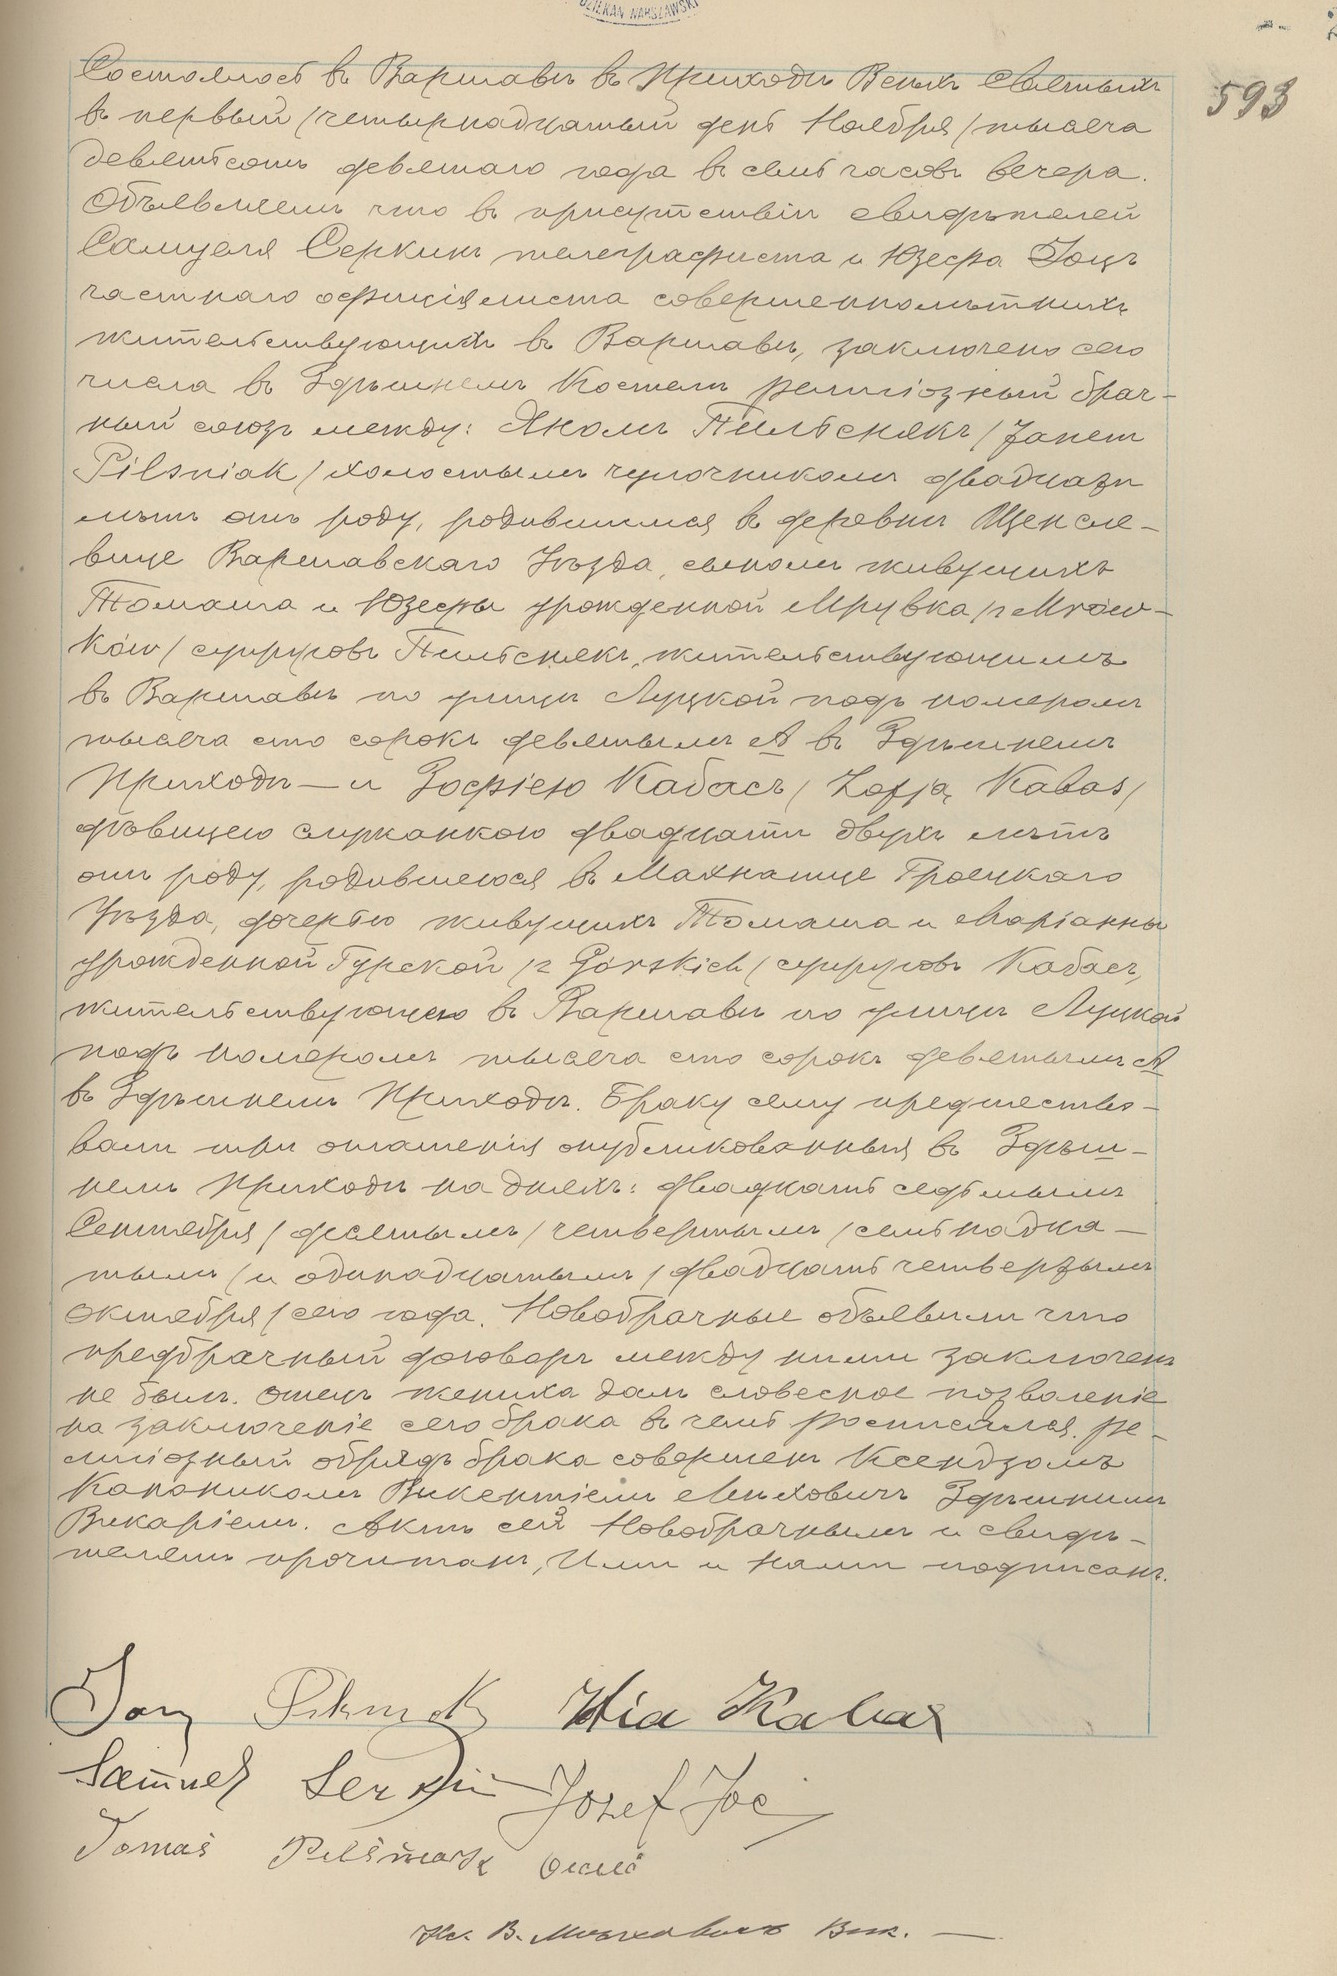 DZIEKAN WARSZAWSKI
593
Состоялось въ Варшавѣ въ Приходѣ Всѣхъ Святыхъ
въ первый /четырнадцатый день Ноября/ тысяча
девятьсотъ девятаго года въ семь часовъ вечера.
Объявляемъ что въ присутствіи свидѣтелей
Самуеля Серкинъ телеграфиста и Юзефа Іоцъ
частнаго официялиста совершеннолѣтнихъ
жительствующихъ въ Варшавѣ, заключено сего
числа въ Здѣшнемъ Костелѣ религіозный брач-
ный союзъ между: Яномъ Пильснякъ /Janem
Pilsniak/ холостымъ чулочникомъ двадцати
лѣтъ отъ роду, родившимся въ деревни Щенсле-
вице Варшавскаго Уѣзда, сыномъ живущихъ
Томаша и Юзефы урожденной Мрувка /z Mrów-
ków/ супруговъ Пильснякъ, жительствующимъ
въ Варшавѣ по улицѣ Луцкой подъ номеромъ
тысяча сто сорокъ девятымъ А въ Здѣшнемъ
Приходѣ — и Зофіею Кабасъ /Zofją Kabas/
дѣвицею служанкою двадцати двухъ лѣтъ
отъ роду, родившеюся въ Махнатце Гроецкаго
Уѣзда, дочерью живущихъ Томаша и Маріанны
урожденной Гурской /z Górskich/ супруговъ Кабасъ,
жительствующею въ Варшавѣ по улицѣ Луцкой
подъ номеромъ тысяча сто сорокъ девятымъ А
въ Здѣшнемъ Приходѣ. Браку сему предшество-
вали три оглашенія опубликованныя въ Здѣш-
немъ Приходѣ на дняхъ: двадцать седьмымъ
Сентября /десятымъ/ четвертымъ /семнадца-
тымъ/ и одинадцатымъ /двадцать четвертымъ
Октября/ сего года. Новобрачные объявили что
предбрачный договоръ между ними заключенъ
не былъ. Отецъ жениха далъ словесное позволеніе
на заключеніе сего брака въ чемъ росписался. Ре-
лигіозный обрядъ брака совершенъ Ксендзомъ
Каноникомъ Викентіемъ Мыховичъ Здѣшнимъ
Викаріемъ. Актъ сей Новобрачнымъ и свидѣ-
телямъ прочитанъ, Ими и Нами подписанъ.
Jan Pilsniak Kabas
Samuel Serkin Józef Joc
Tomas Pilsniak
Кс. В. Мыховичъ Вик.